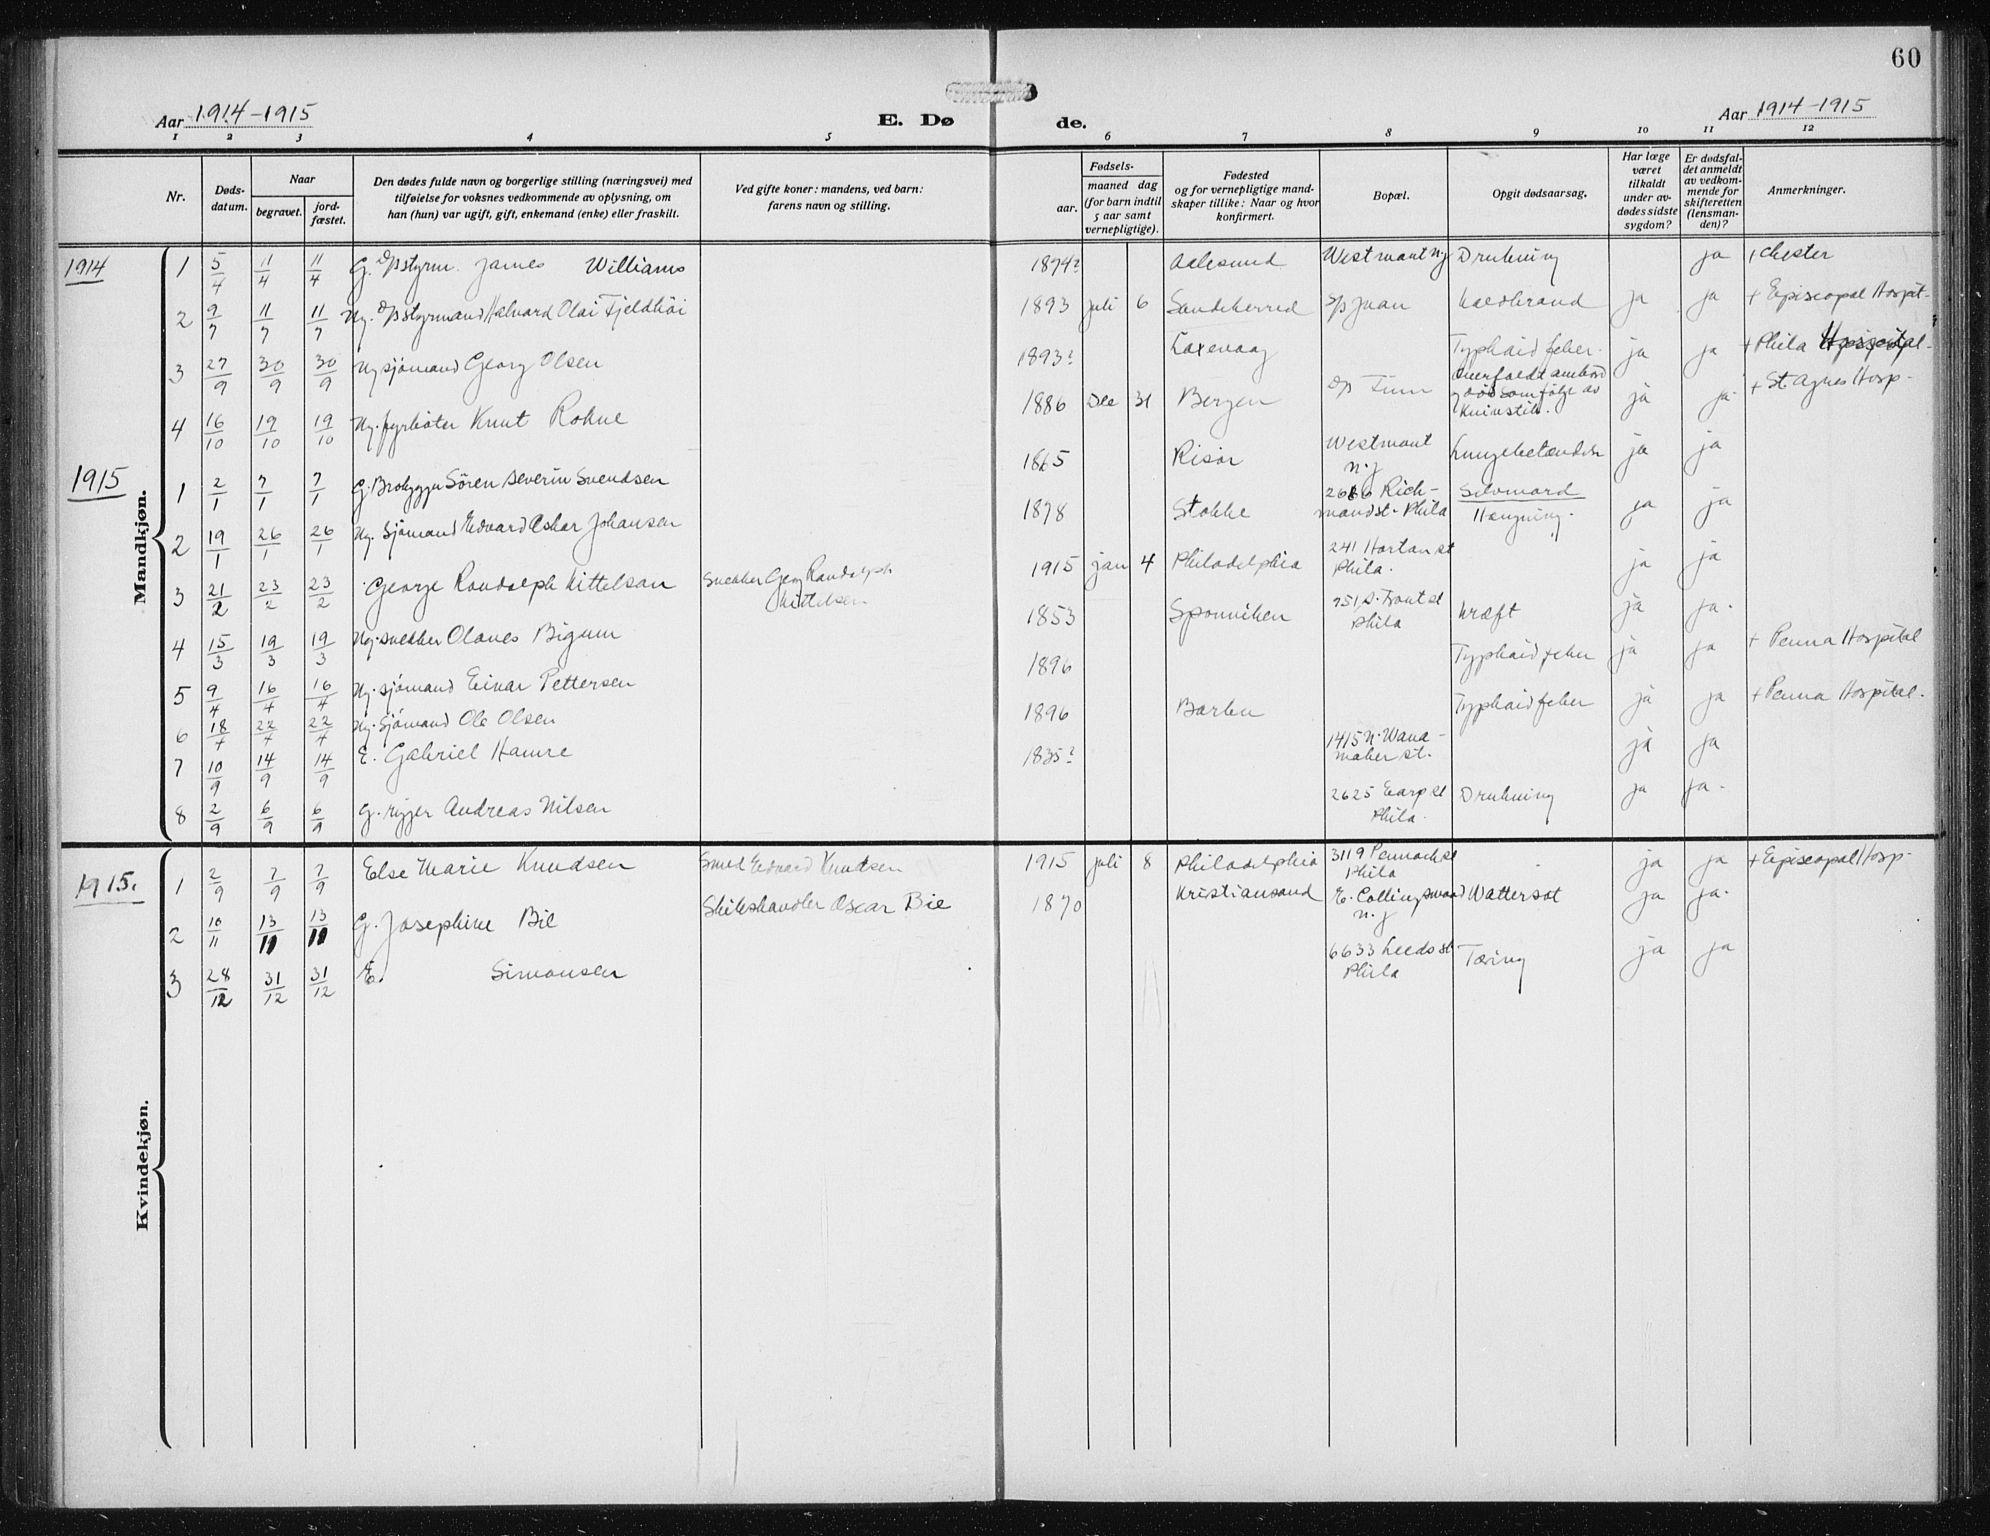 60
Aar 1914-1915
E. Dø de.
Aar 1914-1915
1 2 3 4 5 6 7 8 9 10 11 12
Nr.
Døds-
datum.
Naar
begravet.
jord-
fæstet.
Den dødes fulde navn og borgerlige stilling (næringsvei) med
tilføielse for voksnes vedkommende av oplysning, om
han (hun) var ugift, gift, enkemand (enke) eller fraskilt.
Ved gifte koner: mandens, ved barn:
farens navn og stilling.
Fødsels-
aar.
maaned dag
(for barn indtil
5 aar samt
vernepligtige).
Fødested
og for vernepligtige mand-
skaper tillike: Naar og hvor
konfirmert.
Bopæl.
Opgit dødsaarsag.
Har læge
været
tilkaldt
under av-
dødes sidste
sygdom?
Er dødsfal-
det anmeldt
av vedkom-
mende for
skifteretten
(lensman-
den)?
Anmerkninger.
Mandkjøn.
1914
1 5/4 11/4 11/4 G. D/S styrm. James Williams 1874? Aalesund Westmont N.J Drukning ja Chester
2 9/7 11/7 11/7 Ug. D/S styrmand Halvard Olai Fjeldhöi 1893 juli 6 Sandeherred S/S Juan Koldbrand ja ja + Episcopal Hospit-
3 27/9 30/9 30/9 Ug sjömand Georg Olsen 1893? Laxevaag Typhoid feber. ja ja + Phila Hospital-
4 16/10 19/10 19/10 Ug. fyrböter Knut Rohne 1886 Dec 31 Bergen D/S Finn Overfaldt ambord
og död som fölge av
Knivstik. ja ja + St. Agnes Hosp-
1915
1 2/1 7/1 7/1 G. Brobygger Sören Severin Svendsen 1865 Risör Westmont
N.J Lungebetændelse ja ja
2 19/1 26/1 26/1 Ug. Sjömand Edvard Oskar Johansen 1878 Stokke 2616 Rich-
mondst. Phila Selvmord
Hængning. ja ja
3 21/2 23/2 23/2 George Randolph Kittelsen Snekker Georg Randolph
Kittelsen 1915 jan 4 Philadelphia 241 Hortan st
Phila. ja ja
4 15/3 19/3 19/3 Ug. snekker Olaves Bigum 1853 Sponviken 751 S. Front st
Phila Kræft ja ja.
5 9/4 16/4 16/4 Ug. sjömand Einar Pettersen 1896 Typhoid feber ja ja + Penna Hospital
6 18/4 22/4 22/4 Ug. Sjömand Ole Olsen 1896 Barbu Typhoid feber ja ja + Penna Hospital.
7 10/9 14/9 14/9 E. Gabriel Hamre 1835? 1415 N. Wana-
maker st. ja ja
8 2/9 6/9 6/9 G. rigger Andreas Nilsen 2625 Earp st
Phila. Drukning ja ja.
Kvindekjøn.
1915.
1 2/9 7/9 7/9 Else Marie Knudsen Smed Edvard Knudsen 1915 juli 8 Philadelphia 3119 Pennock st
Phila ja ja + Episcopal Hosp-
2 10/11 13/11 13/11 G. Josephine Bie Skibshandler Oscar Bie 1870 Kristiansand E. Collingswood
N.J Wattersot ja ja.
3 28/12 31/12 31/12 E. Simonsen 6633 Leeds st
Phila Tæring ja ja